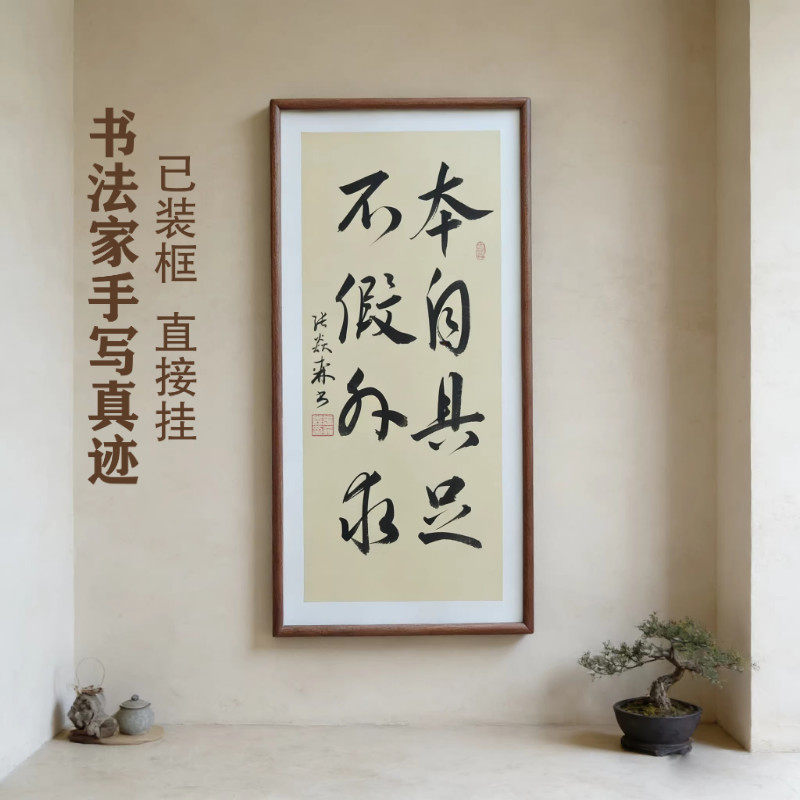 书法家手写真迹
已装框 直接挂
本自具足
不假外求
张焱森书